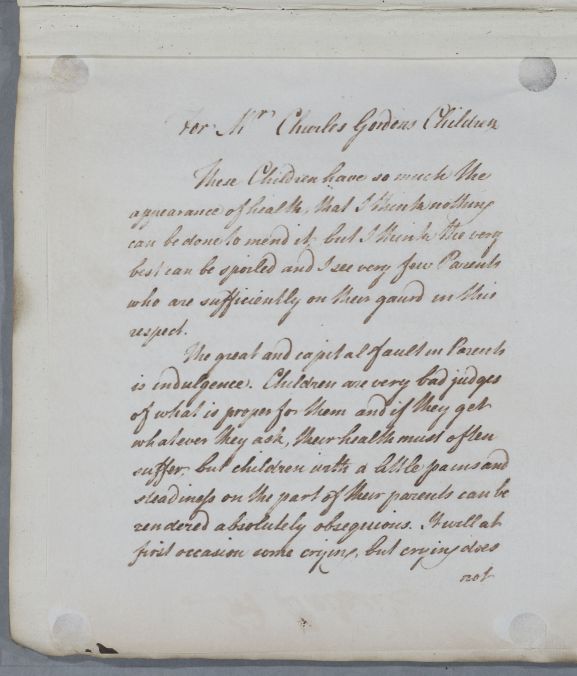 For Mr. Charles Gordons Children
These Children have so much the
appearance of health, that I think nothing
can be done to mend it, but I think the very
best can be spoiled and I see very few Parents
who are sufficiently on their gaurd in this
respect.
The great and capital fault in Parents
is indulgence. Children are very bad judges
of what is proper for them and if they get
whatever they ask, their health must often
suffer, but children with a little pains and
steadiness on the part of their parents can be
rendered absolutely obsequious. It will at
first occasion some crying, but crying does
not